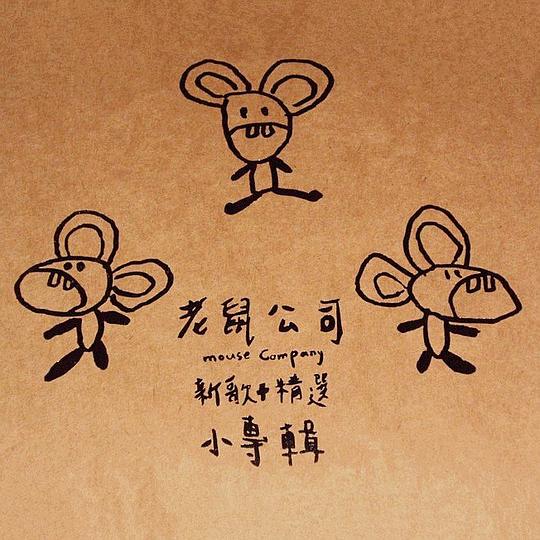 老鼠公司
mouse Company
新歌+精選
小專輯